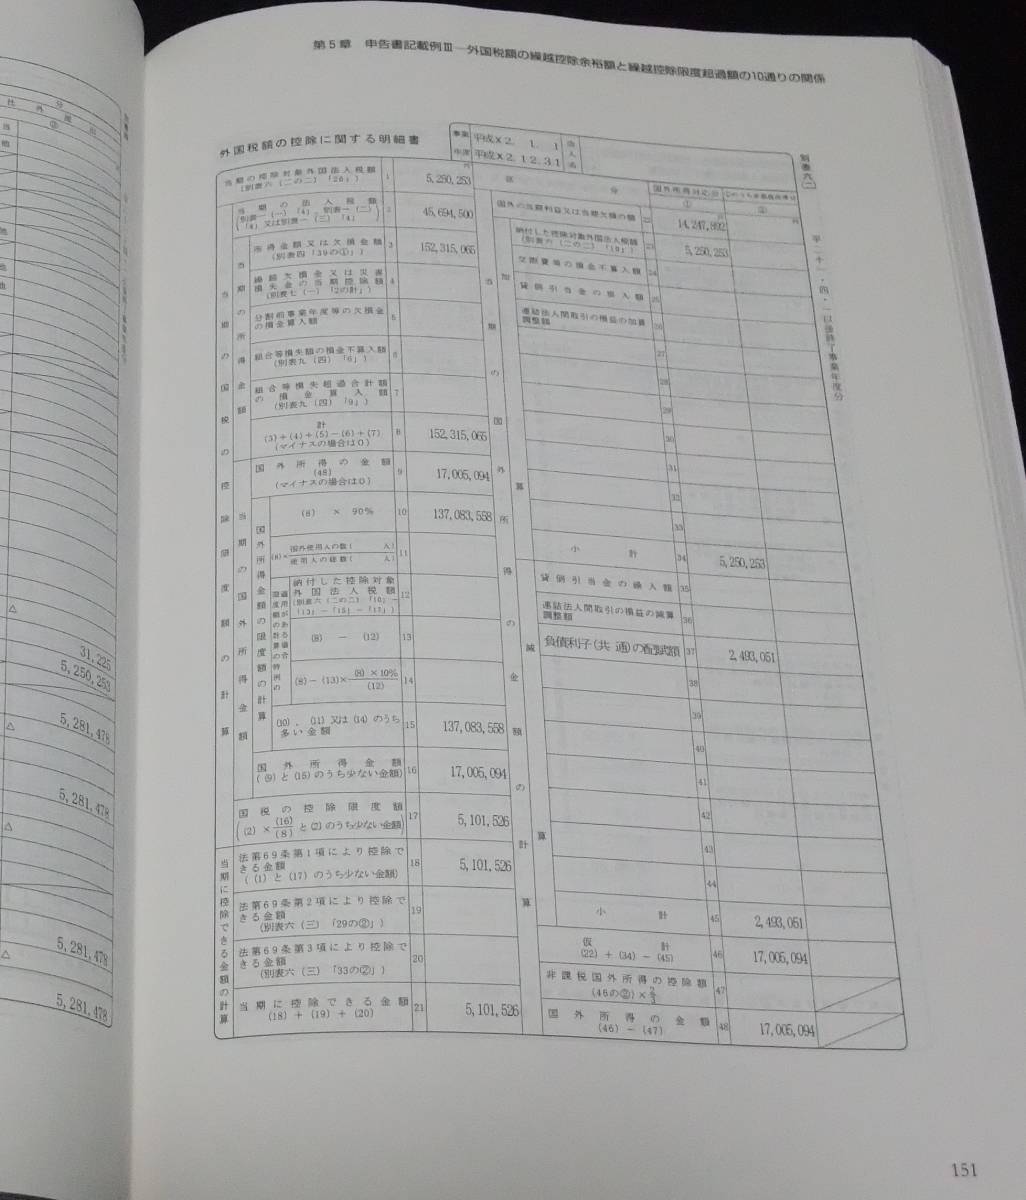 第5章　申告書記載例Ⅲ―外国税額の繰越控除余裕額と繰越控除限度超過額の10通りの関係
外国税額の控除に関する明細書
事業年度
平成X2. 1. 1
平成X2.12.31
法人名
別表六(二)
当期の控除対象外国法人税額
(別表六(二の二)「20」)
1
円
5,250,253
当期の法人税額
(別表一(一)「4」、別表一(二)
「4」又は別表一(三)「4」)
2
45,694,500
当期の所得金額
所得金額又は欠損金額
(別表四「39の①」)
3
152,315,065
繰越欠損金又は災害
損失金の当期控除額
(別表七(一)「2の計」)
4
分割前事業年度等の欠損金
の損金算入額
5
組合等損失額の損金不算入額
(別表九(四)「6」)
6
組合等損失超過合計額
の損金算入額
(別表九(四)「9」)
7
計
(3)+(4)+(5)-(6)+(7)
(マイナスの場合は0)
8
152,315,065
当期の国税の控除限度額の計算
当期の国外所得金額
国外所得の金額
(48)
(マイナスの場合は0)
9
17,005,094
国外所得金額の限度額の計算
(8) × 90%
10
137,083,558
(8)×
国外使用人の数( 人)
使用人の総数( 人)
11
納付した控除対象
外国法人税額
(別表六(二の二)「10」-
「13」-「15」-「17」)
12
(8) - (12)
13
(8)-(13)×
(8)×10%
(12)
14
(10)、(11)又は(14)のうち
多い金額
15
137,083,558
国外所得金額
((9)と(15)のうち少ない金額)
16
17,005,094
国税の控除限度額
((2)×(16)/(8)と(2)のうち少ない金額)
17
5,101,526
当期に控除できる金額の計算
法第69条第1項により控除で
きる金額
((1)と(17)のうち少ない金額)
18
5,101,526
法第69条第2項により控除で
きる金額
(別表六(三)「29の②」)
19
法第69条第3項により控除で
きる金額
(別表六(三)「33の②」)
20
当期に控除できる金額
(18)+(19)+(20)
21
5,101,526
当期の国外所得の金額の計算
区分
国外所得対応分
①
②
国外の当期利益又は当期欠損の額
22
円
14,247,892
円
加算
納付した控除対象外国法人税額
(別表六(二の二)「10」)
23
5,250,253
交際費等の損金不算入額
24
貸倒引当金の戻入額
25
連結法人間取引の損益の加算
調整額
26
27
28
29
30
31
32
33
小計
34
5,250,253
減算
貸倒引当金の繰入額
35
連結法人間取引の損益の減算
調整額
36
負債利子(共通)の配賦額
37
2,493,051
38
39
40
41
42
43
44
小計
45
2,493,051
仮計
(22)+(34)-(45)
46
17,005,094
非課税国外所得の控除額
(46の②)×2/3
47
国外所得の金額
(46)-(47)
48
17,005,094
31,225
5,250,253
△
5,281,478
△
5,281,478
△
5,281,478
△
5,281,478
151